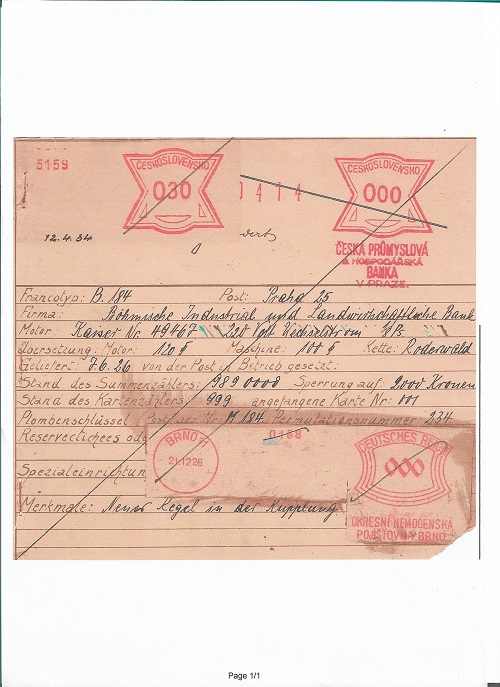 5159
ČESKOSLOVENSKO
030
0414
ČESKOSLOVENSKO
000
12.4.34
ČESKÁ PRŮMYSLOVÁ
A HOSPODÁŘSKÁ
BANKA
V PRAZE.
Francotyp: B. 184 Post: Praha 25
Firma: Böhmische Industrial und Landwirtschaftliche Bank
Motor: Kaiser Nr. 49467 220 Volt Wechselstrom
Übersetzung: Motor: 120 Maschine: 100 Kette: Roderwald
Geliefert: 7.6.26 von der Post: in Betrieb gesetzt:
Stand des Summenzählers: 9890000 Sperrung auf: 2000 Kronen
Stand des Kartenzählers: 999 angefangene Karte Nr: 001
Plombenschlüssel Post der Nr: M 184 Permutationsnummer: 234
Reserveclichees ode
0168
BRNO 1
21.12.26
DEUTSCHES REICH
000
Spezialeinrichtun
OKRESNÍ NEMOCENSKÁ
POJIŠŤOVNA BRNO
Merkmale: Neuer Kegel in der Kupplung
Page 1/1